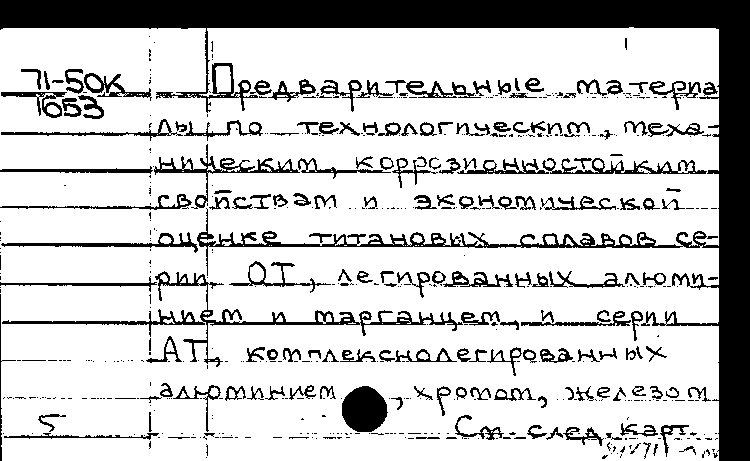 71-50К
1053
Предварительные материа
лы по технологическим, меха-
ническим, коррозионностойким
свойствам и экономической
оценке титановых сплавов се-
рии ОТ, легированных алюми-
нием и марганцем, и серии
АТ, комплекснолегированных
алюминием, хромом, железом
5
См. след. карт.